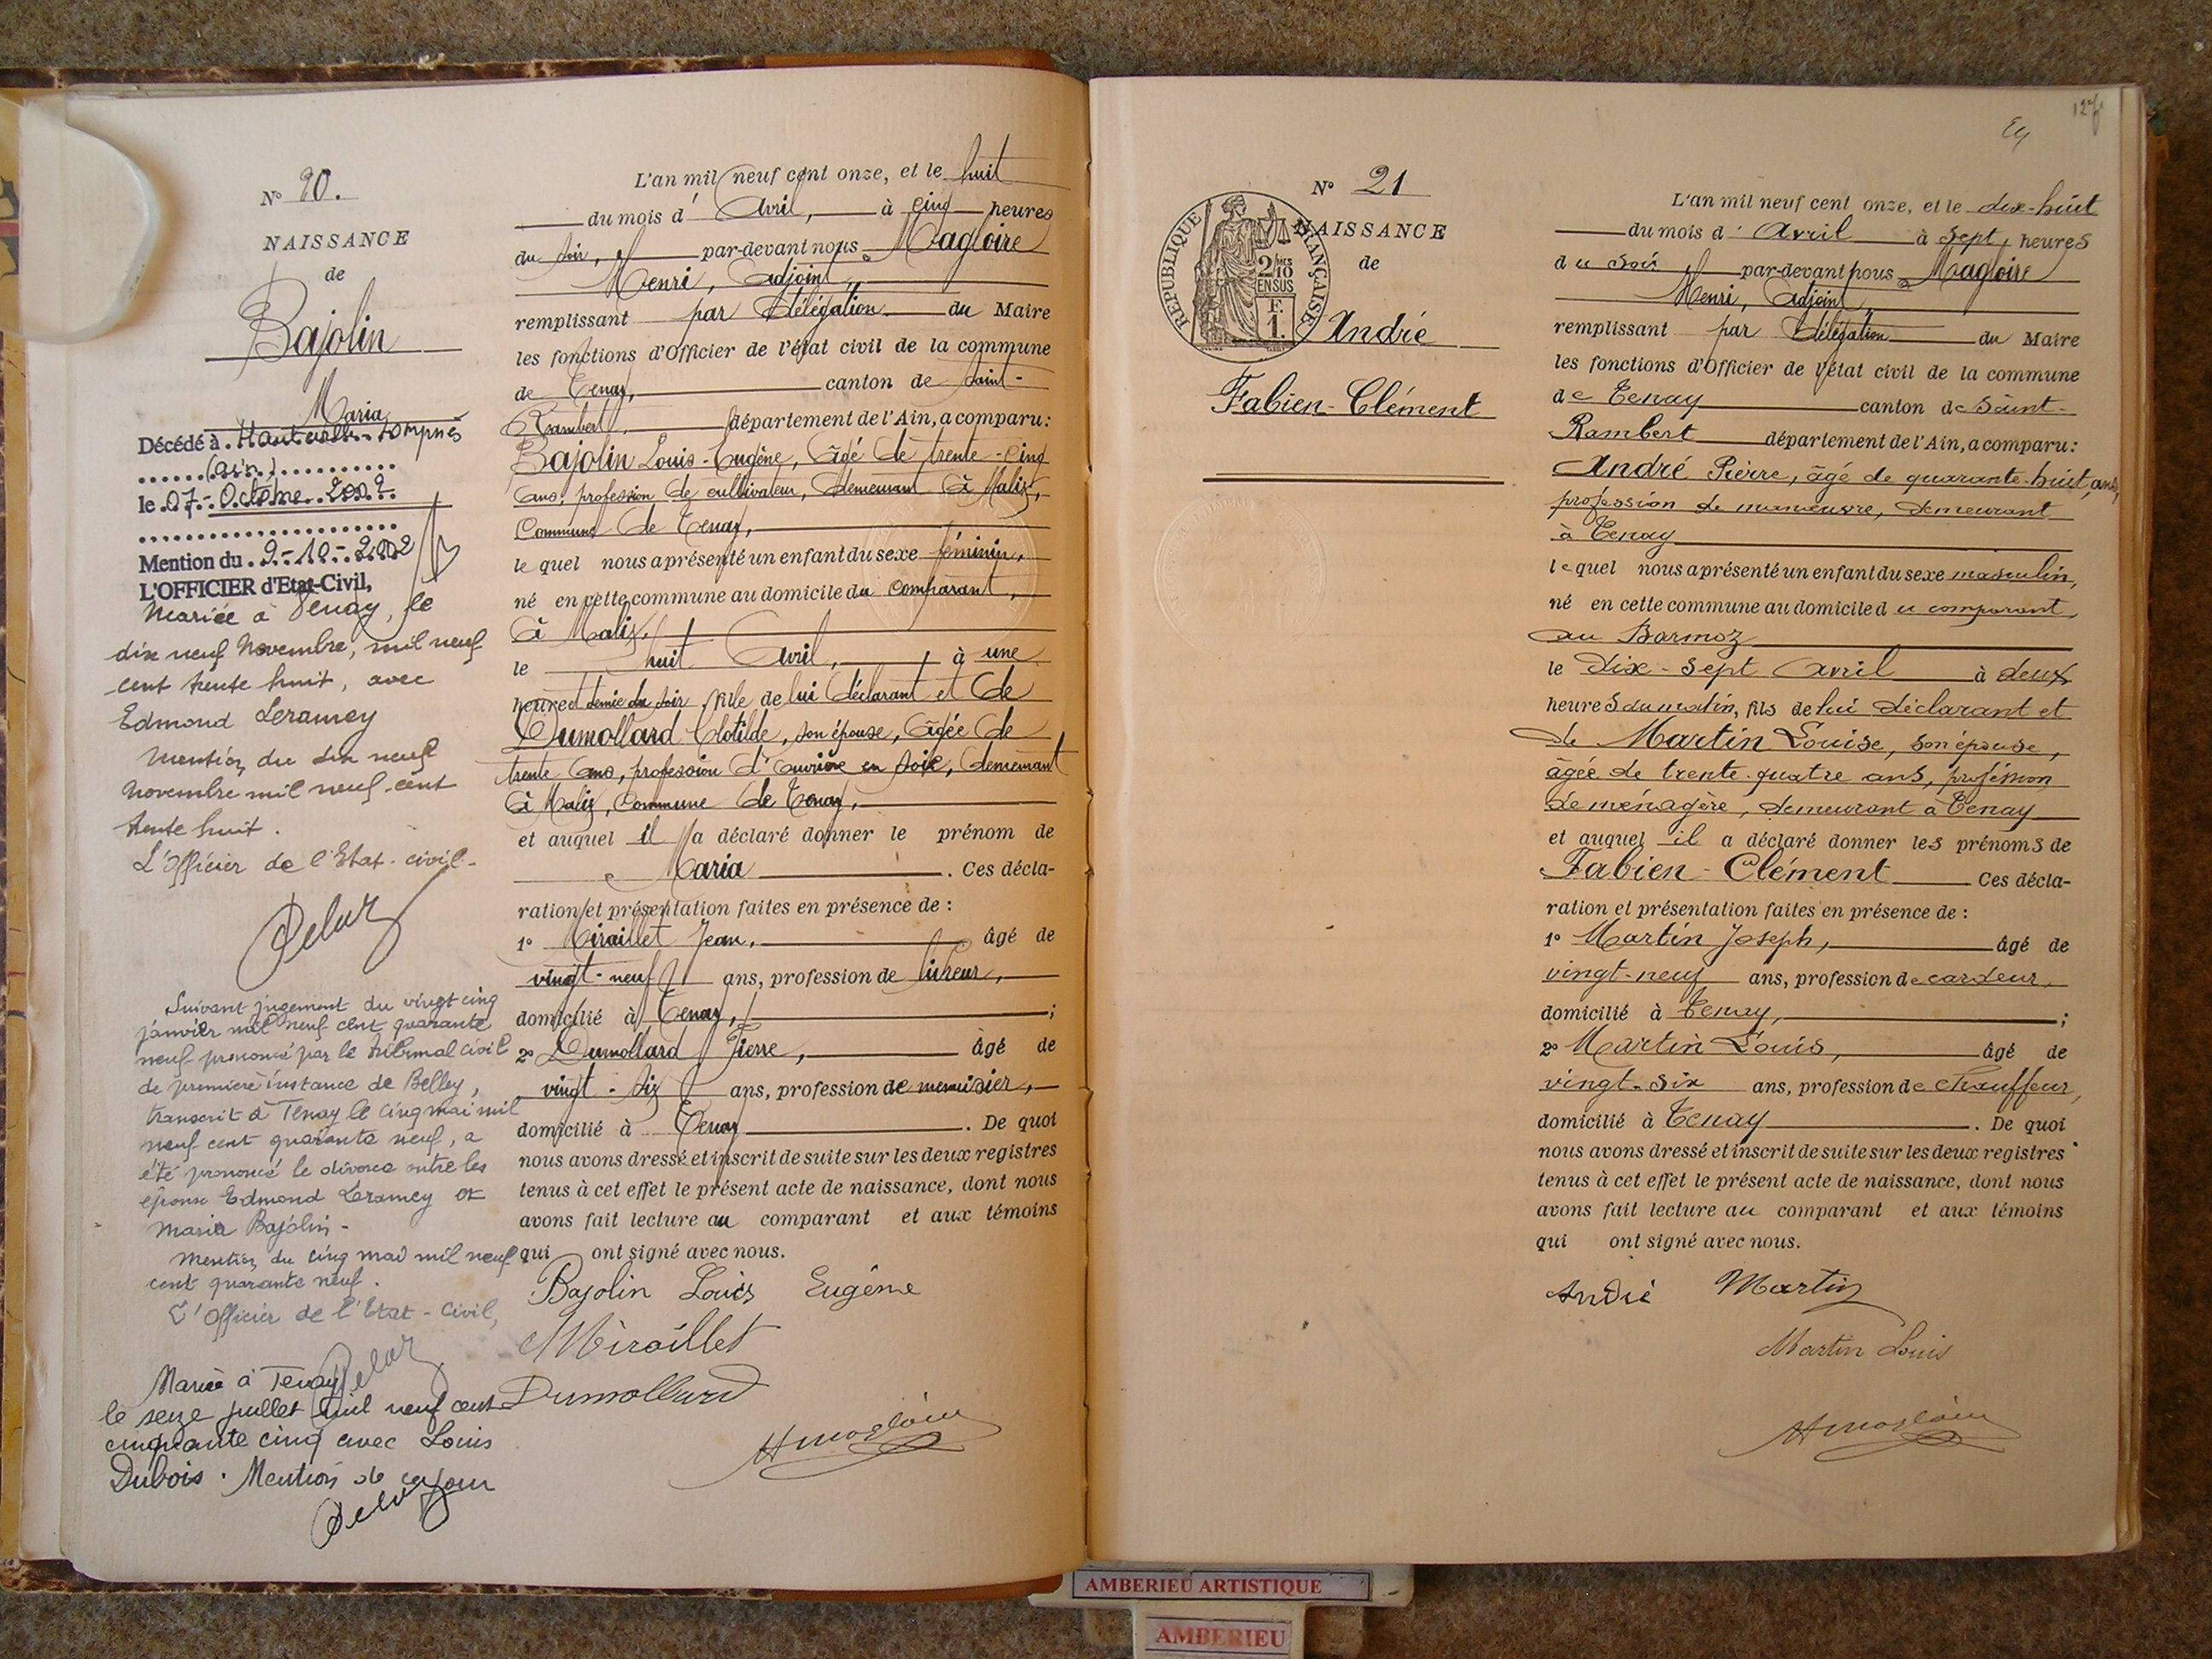 N° 20.
NAISSANCE
de
Bajolin
Maria
Décédé à Hauteville-Lompnes
(Ain)
le 07 Octobre 2002
Mention du 9-10-2002
L'OFFICIER d'Etat-Civil,
Mariée à Tenay, le
dix neuf Novembre, mil neuf
cent trente huit, avec
Edmond Leramey
Mention du dix neuf
Novembre mil neuf cent
trente huit.
L'Officier de l'Etat-civil-
Suivant jugement du vingt cinq
janvier mil neuf cent quarante
neuf prononcé par le tribunal civil
de première instance de Belley,
transcrit à Tenay le cinq mai mil
neuf cent quarante neuf, a
été prononcé le divorce entre les
époux Edmond Leramey et
Maria Bajolin-
Mention du cinq mai mil neuf
cent quarante neuf.
L'Officier de l'Etat-Civil,
Mariée à Tenay
le seize juillet mil neuf cent
cinquante cinq avec Louis
Dubois. Mention de ce jour
L'an mil neuf cent onze, et le huit
du mois d' Avril, à cinq heures
du soir, par-devant nous Magloire
Henri, Adjoint,
remplissant par délégation du Maire
les fonctions d'Officier de l'état civil de la commune
de Tenay, canton de Saint-
Rambert, département de l'Ain, a comparu:
Bajolin Louis-Eugène, âgé de trente-cinq
ans, profession de cultivateur, demeurant à Malix,
Commune de Tenay,
lequel nous a présenté un enfant du sexe féminin,
né en cette commune au domicile du comparant,
à Malix,
le huit Avril, à une
heure et demie du soir, fille de lui déclarant et de
Dumollard Clotilde, son épouse, âgée de
trente ans, profession d'ouvrière en soie, demeurant
à Malix, Commune de Tenay,
et auquel il a déclaré donner le prénom de
Maria. Ces décla-
ration et présentation faites en présence de :
1° Miraillet Jean, âgé de
vingt-neuf ans, profession de livreur,
domicilié à Tenay, ;
2° Dumollard Pierre, âgé de
vingt-six ans, profession de menuisier,
domicilié à Tenay. De quoi
nous avons dressé et inscrit de suite sur les deux registres
tenus à cet effet le présent acte de naissance, dont nous
avons fait lecture au comparant et aux témoins
qui ont signé avec nous.
Bajolin Louis Eugène
Miraillet
Dumollard
HMagloire
127
N° 21
NAISSANCE
de
RÉPUBLIQUE FRANÇAISE
2/10 EN SUS
F. 1.
André
Fabien-Clément
L'an mil neuf cent onze, et le dix-huit
du mois d' Avril à sept heures
du soir par-devant nous Magloire
Henri, Adjoint
remplissant par délégation du Maire
les fonctions d'Officier de l'état civil de la commune
de Tenay canton de Saint-
Rambert département de l'Ain, a comparu:
André Pierre, âgé de quarante-huit ans,
profession de manoeuvre, demeurant
à Tenay
lequel nous a présenté un enfant du sexe masculin,
né en cette commune au domicile du comparant,
au Barmoz
le dix-sept avril à deux
heures du matin, fils de lui déclarant et
de Martin Louise, son épouse,
âgée de trente-quatre ans, profession
de ménagère, demeurant à Tenay
et auquel il a déclaré donner les prénoms de
Fabien-Clément Ces décla-
ration et présentation faites en présence de :
1° Martin Joseph, âgé de
vingt-neuf ans, profession de cardeur,
domicilié à Tenay, ;
2° Martin Louis, âgé de
vingt-six ans, profession de chauffeur,
domicilié à Tenay. De quoi
nous avons dressé et inscrit de suite sur les deux registres
tenus à cet effet le présent acte de naissance, dont nous
avons fait lecture au comparant et aux témoins
qui ont signé avec nous.
André Martin
Martin Louis
HMagloire
AMBERIEU ARTISTIQUE
AMBERIEU